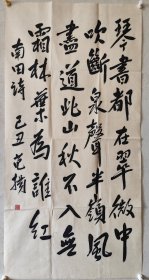 琴書都在翠微中
吹斷泉聲半嶺風
盡道此山秋不入無
霜林葉為誰紅
南田詩 己丑